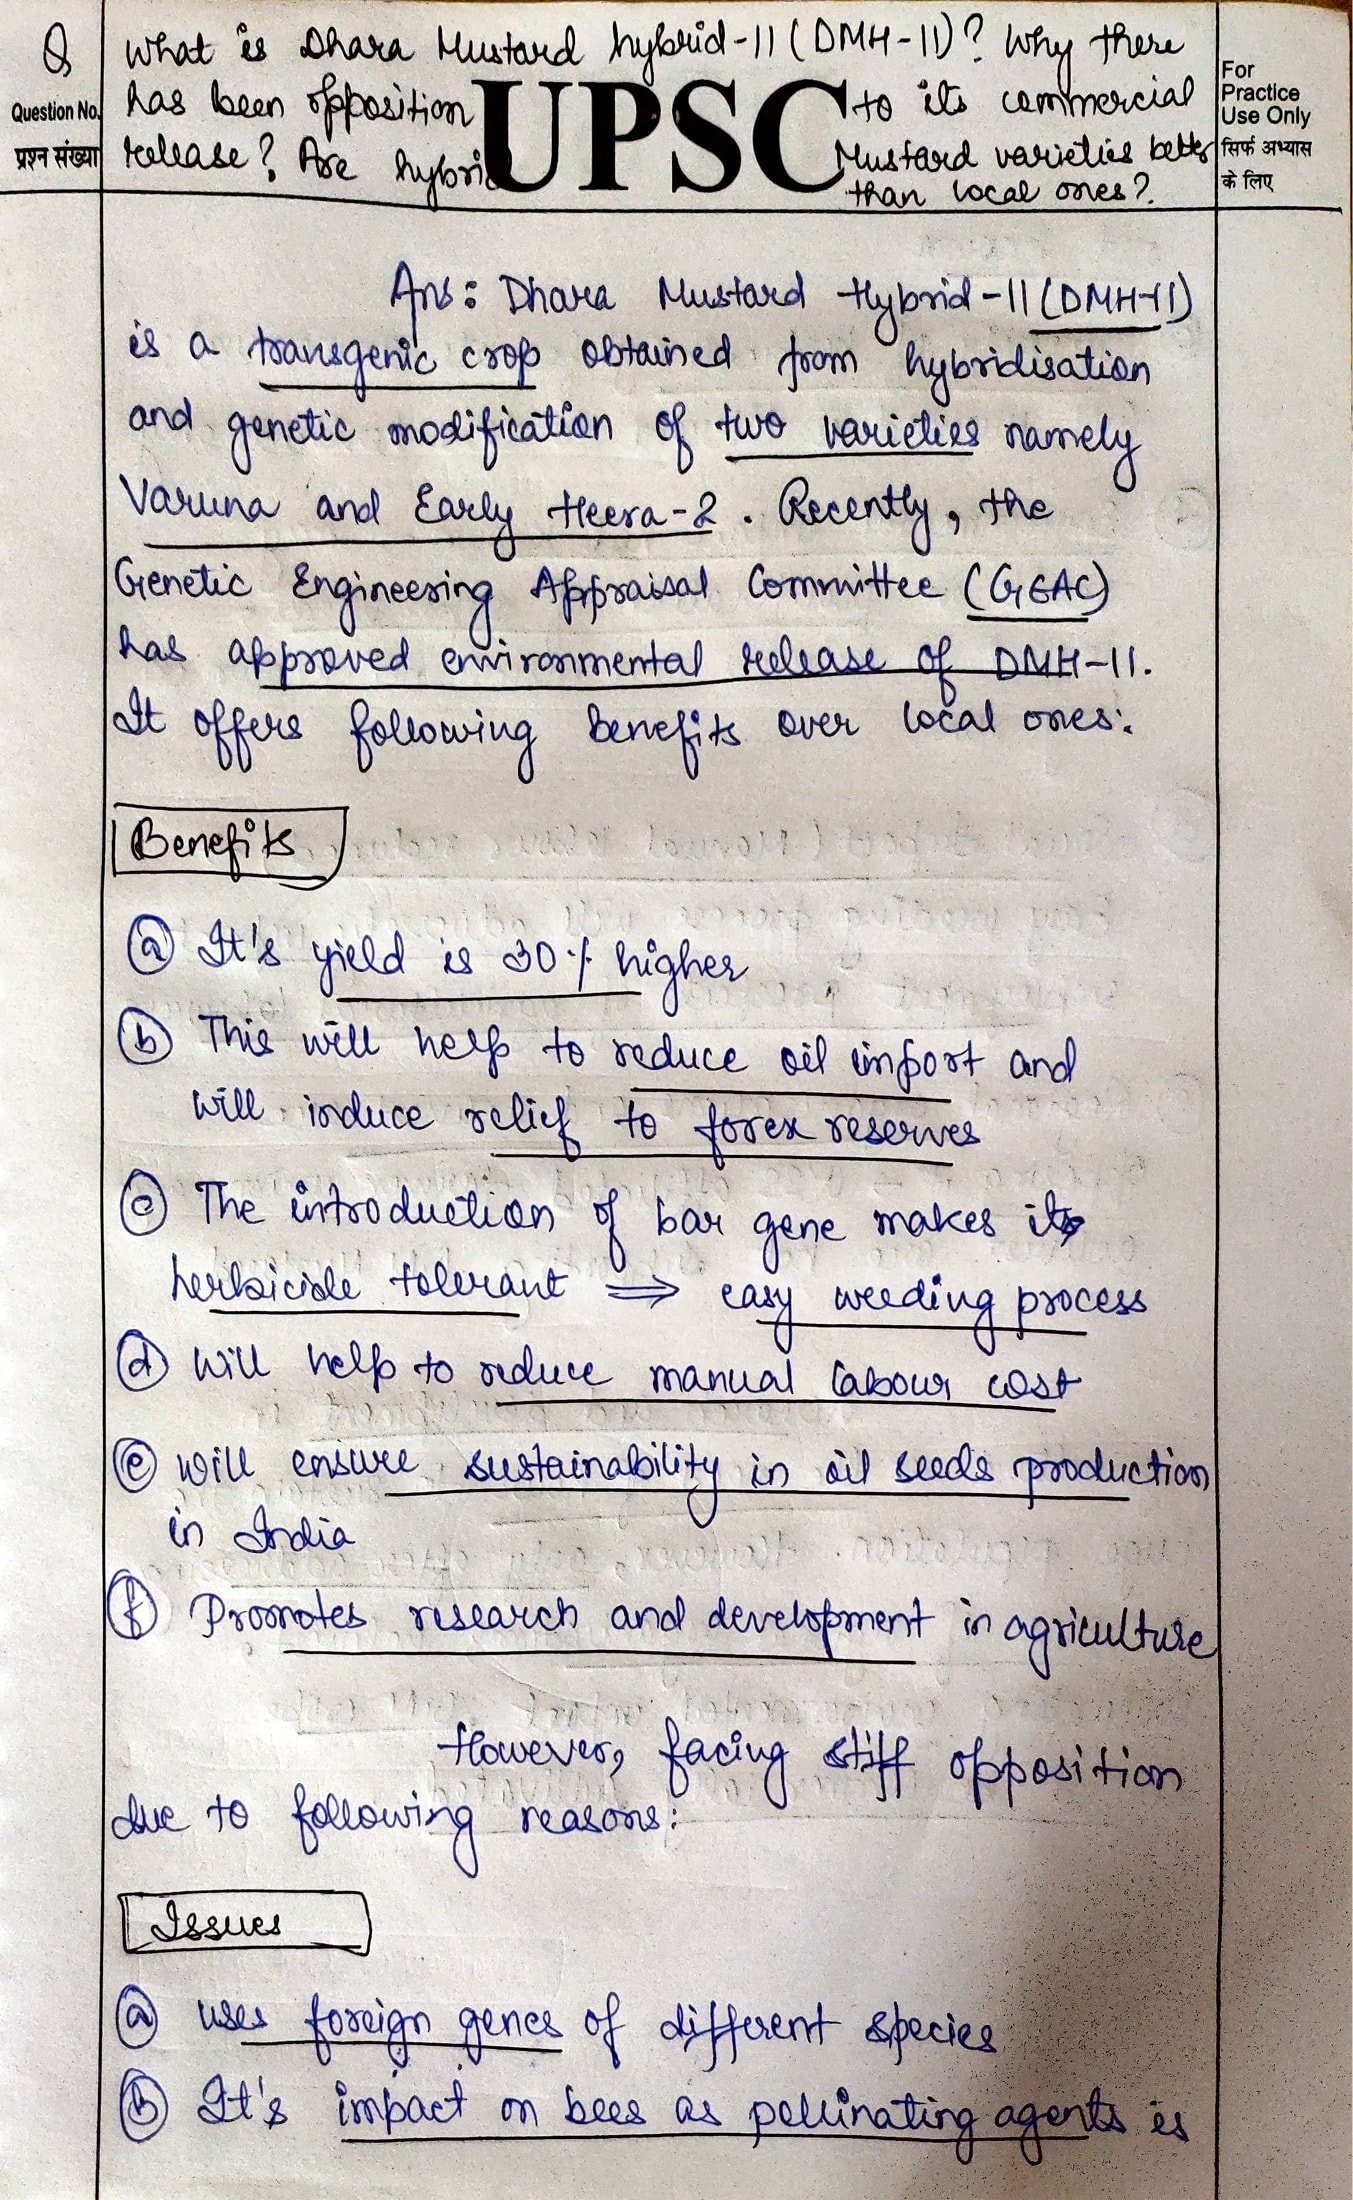 Q What is Dhara Mustard hybrid-11 (DMH-11)? Why there
Question No. has been opposition UPSC to its commercial
प्रश्न संख्या release? Are hybrid Mustard varieties better
than local ones?
For
Practice
Use Only
सिर्फ अभ्यास
के लिए
Ans: Dhara Mustard Hybrid-11 (DMH-11)
is a transgenic crop obtained from hybridisation
and genetic modification of two varieties namely
Varuna and Early Heera-2. Recently, the
Genetic Engineering Appraisal Committee (GEAC)
has approved environmental release of DMH-11.
It offers following benefits over local ones:
Benefits
(a) It's yield is 30% higher
(b) This will help to reduce oil import and
will induce relief to forex reserves
(c) The introduction of bar gene makes it
herbicide tolerant ⇒ easy weeding process
(d) Will help to reduce manual labour cost
(e) Will ensure sustainability in oil seeds production
in India
(f) Promotes research and development in agriculture
However, facing stiff opposition
due to following reasons:
Issues
(a) uses foreign genes of different species
(b) It's impact on bees as pollinating agents is